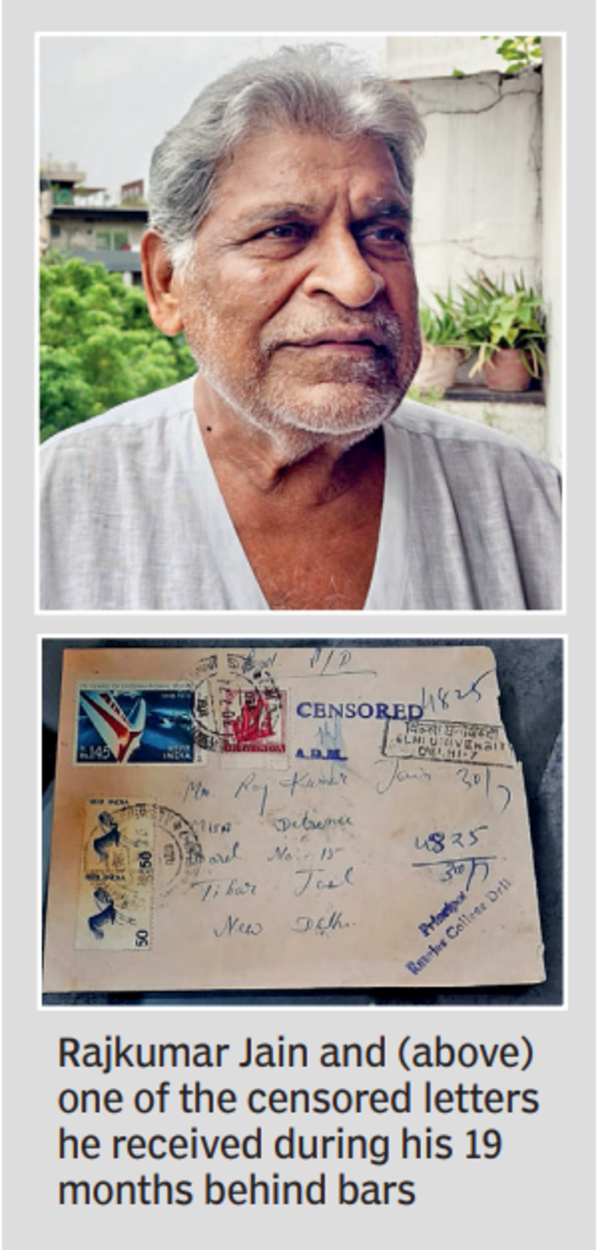 CENSORED
A.D.M.
4825
DELHI UNIVERSITY
DELHI-7
145
INDIA
Mr Raj Kumar Jain 30/7
MISA Detenue
Ward No. 15
Tihar Jail
New Delhi.
4825
50
50
Principal
Ramjas College Delhi
Rajkumar Jain and (above)
one of the censored letters
he received during his 19
months behind bars